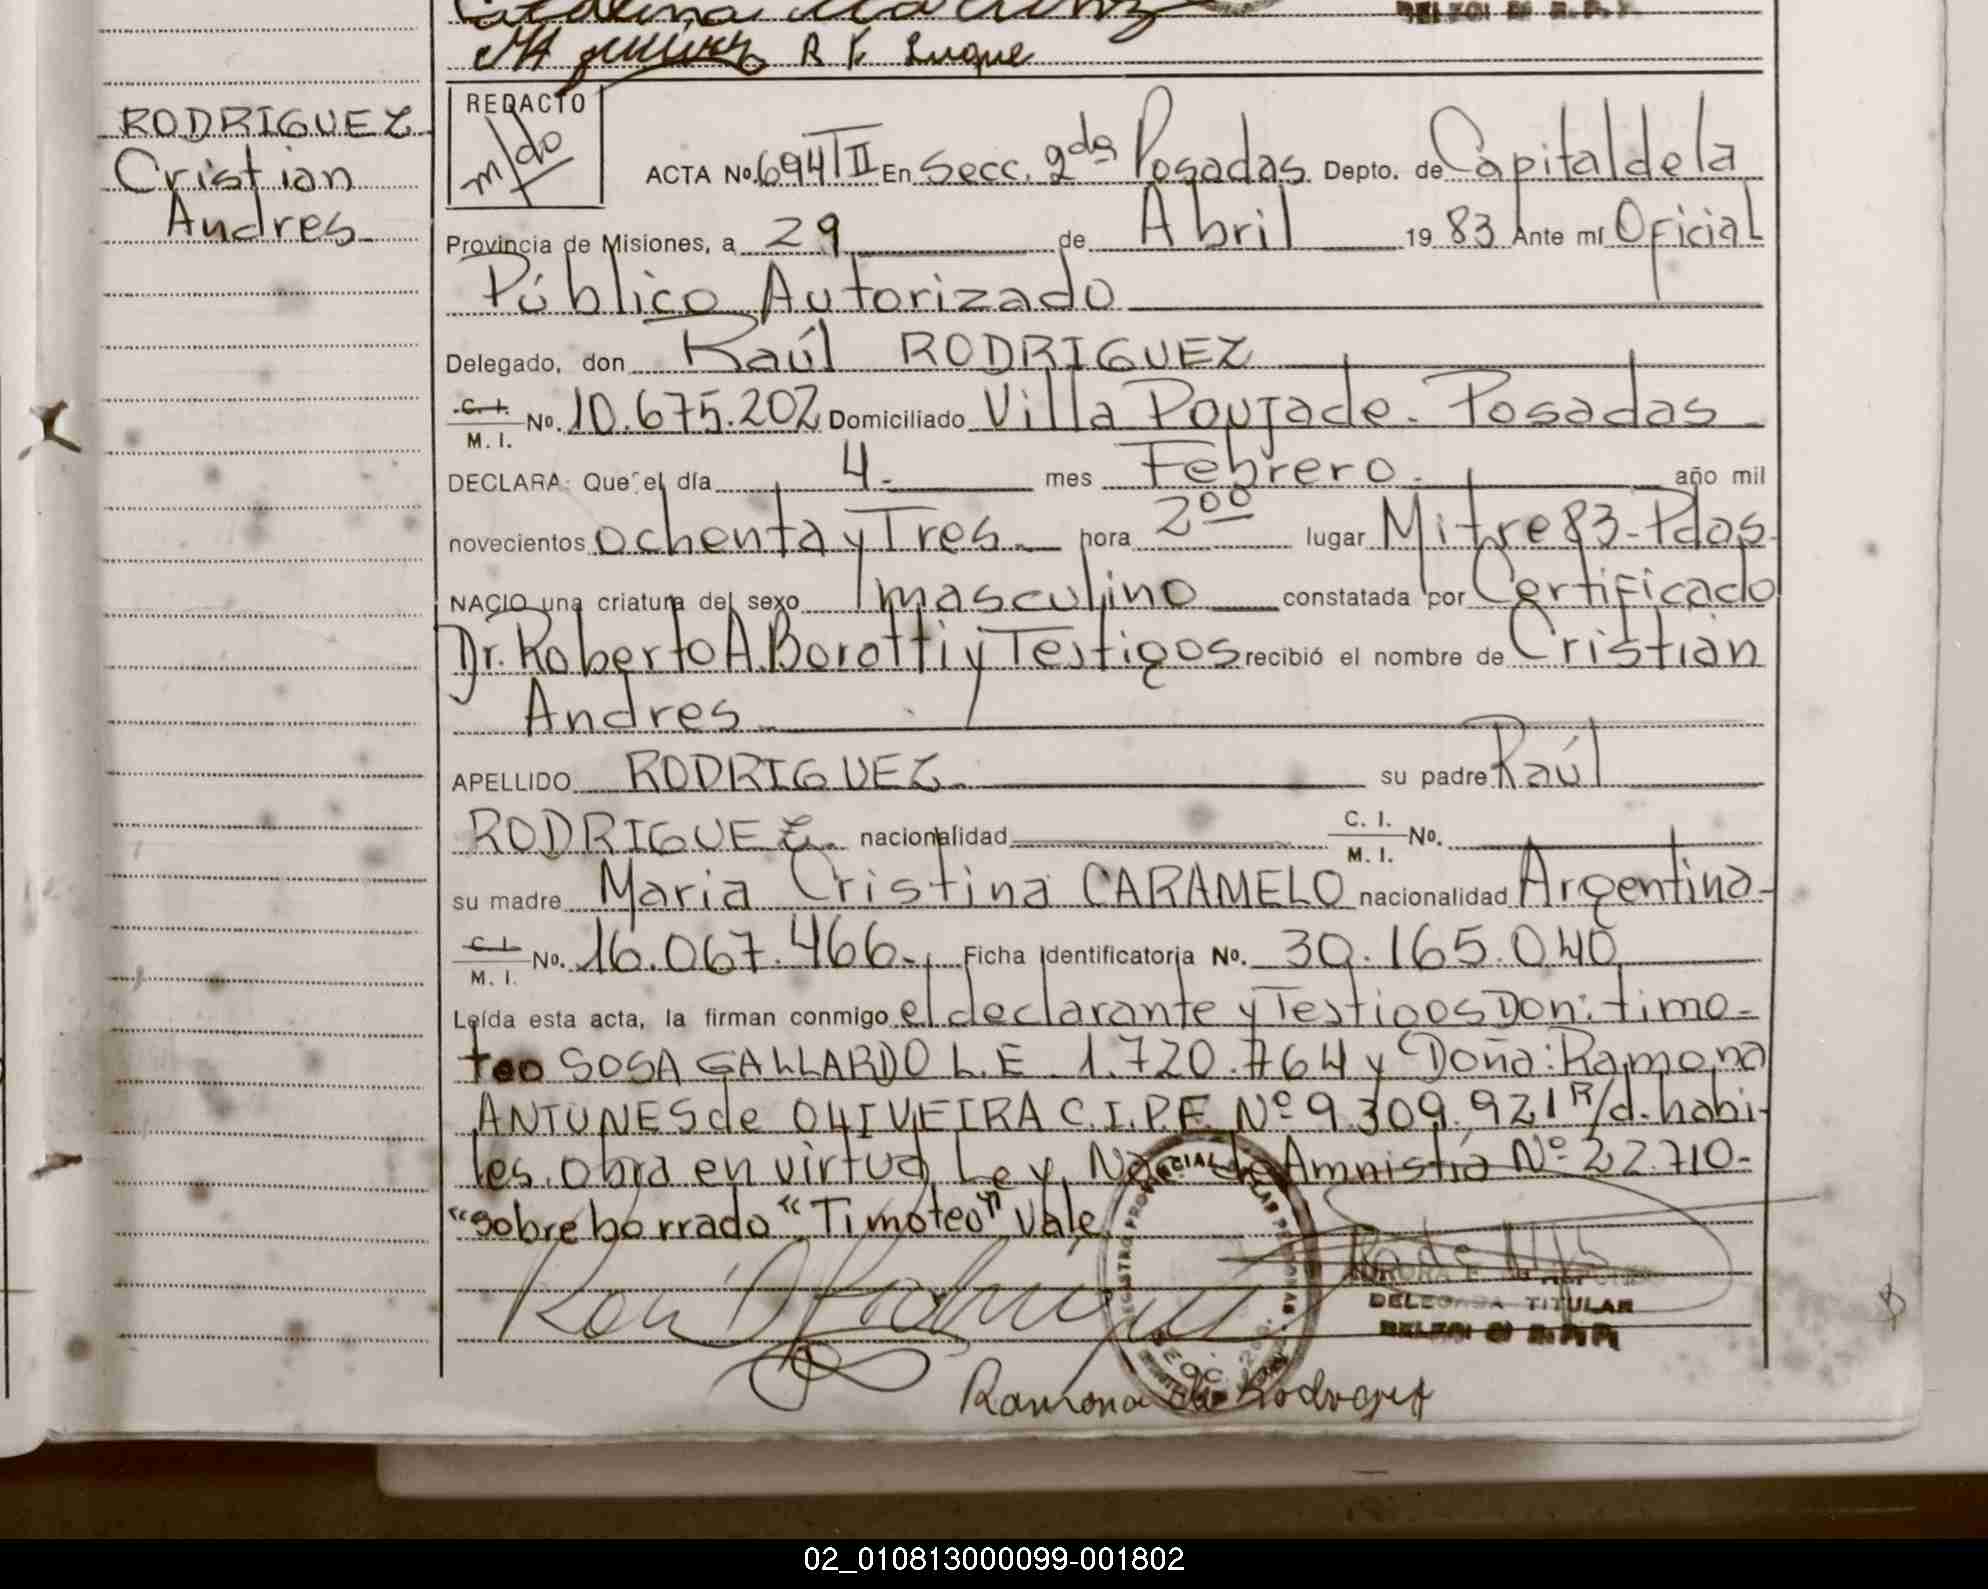 R F Luque
RODRIGUEZ
Cristian
Andres
REDACTO
m/do
ACTA No. 694 T II En Secc. 2da Posadas Depto. de Capital de la
Provincia de Misiones, a 29 de Abril 19 83 Ante mí Oficial
Público Autorizado
Delegado, don Raúl RODRIGUEZ
C. I. / M. I. No. 10.675.202 Domiciliado Villa Poujade - Posadas
DECLARA: Que el día 4- mes Febrero - año mil
novecientos ochenta y Tres hora 2 00 lugar Mitre 83 - Pdas
NACIO una criatura del sexo masculino constatada por Certificado
Dr. Roberto A. Borotti y Testigos recibió el nombre de Cristian
Andres
APELLIDO RODRIGUEZ su padre Raúl
RODRIGUEZ nacionalidad C. I. / M. I. No.
su madre Maria Cristina CARAMELO nacionalidad Argentina-
C. I. / M. I. No. 16.067.466.- Ficha Identificatoria No. 30.165.040
Leída esta acta, la firman conmigo el declarante y Testigos Don: timo-
teo SOSA GALLARDO L.E 1.720.764 y Doña: Ramona
ANTUNES de OLIVEIRA C.I.P.F. Nº 9.309.921 R/d. habi-
les. Obra en virtud Ley Nac. de Amnistia Nº 22.710-
"sobre borrado "Timoteo" Vale
DELEGADA TITULAR
Ramona de Rodrigues
02_010813000099-001802